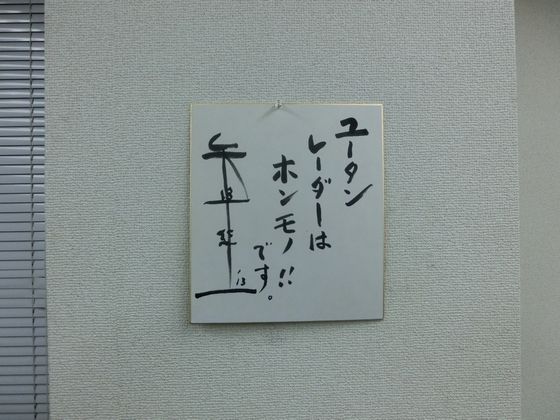 ユータン
レーダーは
ホンモノ!!
です。
'13